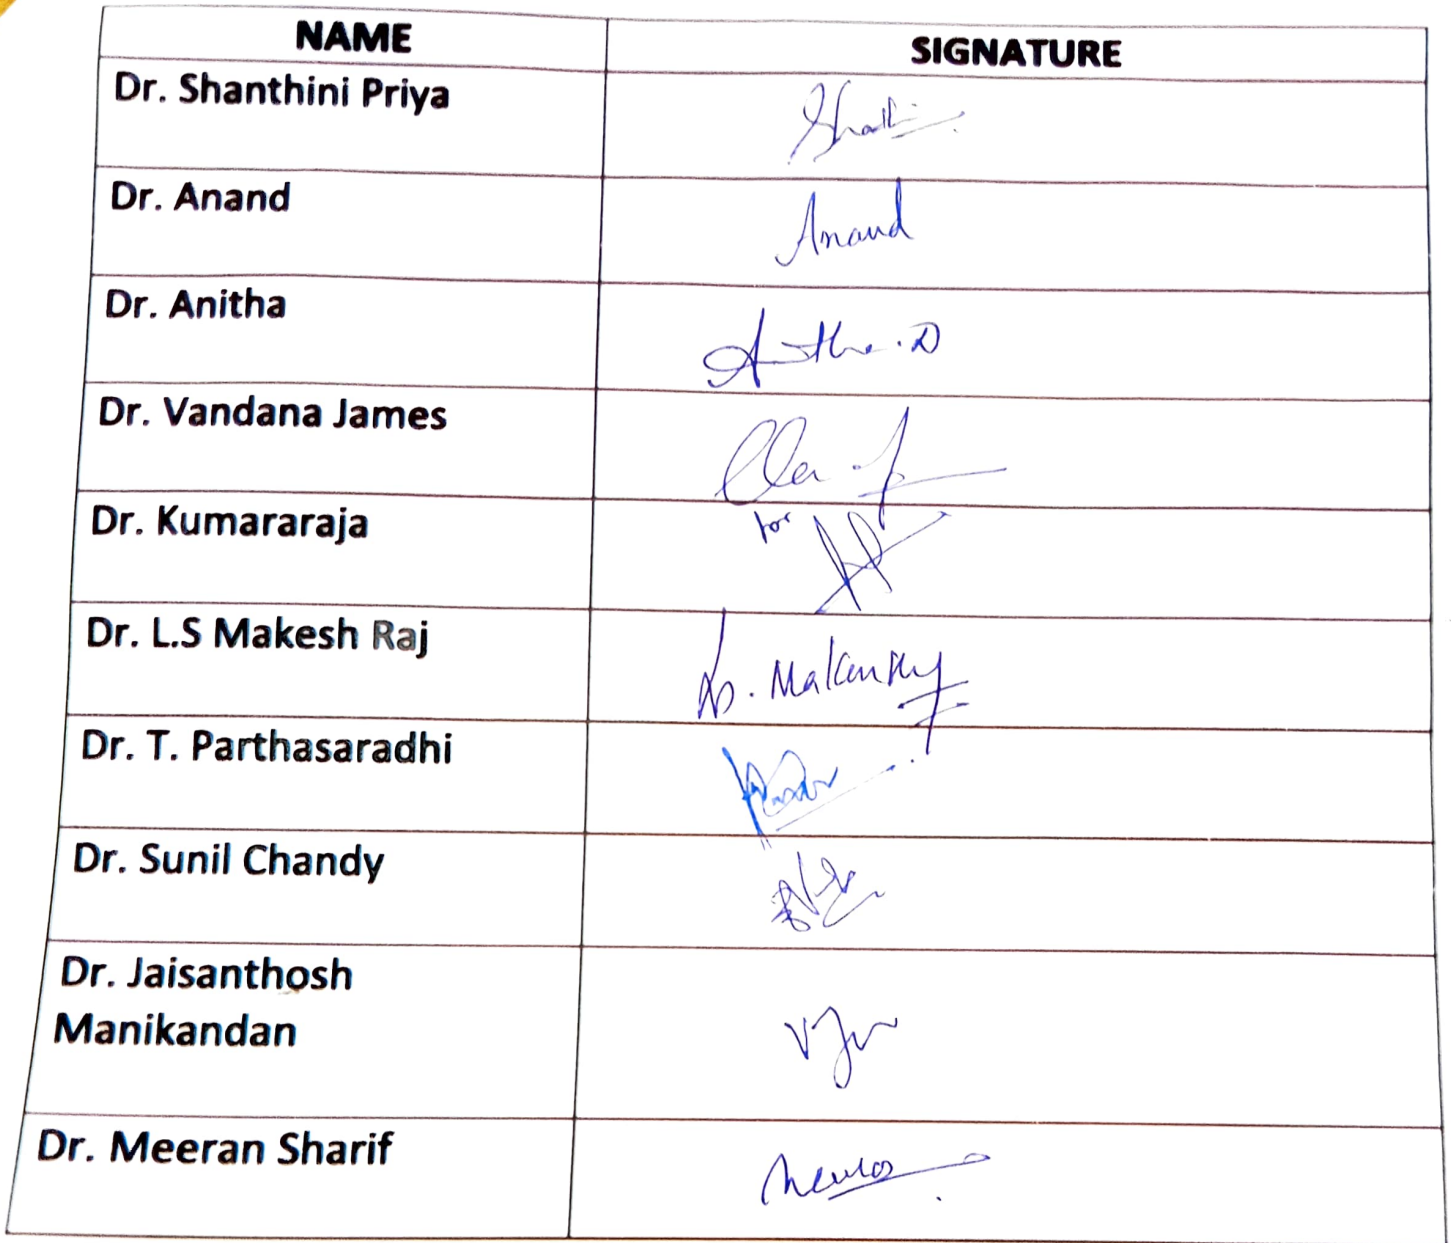 NAME
SIGNATURE
Dr. Shanthini Priya
Dr. Anand
Anand
Dr. Anitha
Anitha.D
Dr. Vandana James
Dr. Kumararaja
for
Dr. L.S Makesh Raj
Dr. T. Parthasaradhi
Dr. Sunil Chandy
Dr. Jaisanthosh
Manikandan
Dr. Meeran Sharif